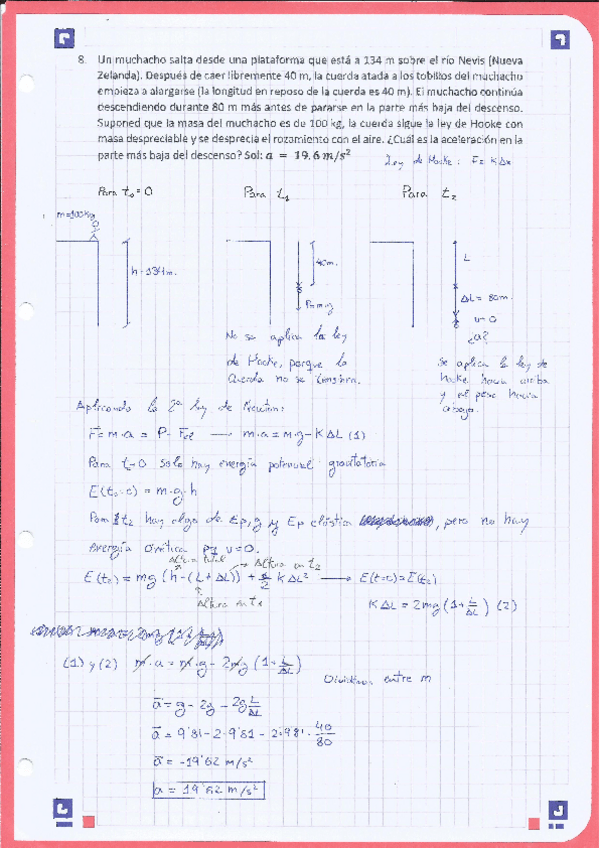 8. Un muchacho salta desde una plataforma que está a 134 m sobre el río Nevis (Nueva
Zelanda). Después de caer libremente 40 m, la cuerda atada a los tobillos del muchacho
empieza a alargarse (la longitud en reposo de la cuerda es 40 m). El muchacho continúa
descendiendo durante 80 m más antes de pararse en la parte más baja del descenso.
Suponed que la masa del muchacho es de 100 kg, la cuerda sigue la ley de Hooke con
masa despreciable y se desprecia el rozamiento con el aire. ¿Cuál es la aceleración en la
parte más baja del descenso? Sol: a = 19.6 m/s²
Ley de Hooke: F = K Δx
Para t₀ = 0 Para t₁ Para t₂
m=100kg
h=134m.
40m.
P=m·g
L
ΔL = 80m.
v=0
¿a?
No se aplica la ley
de Hooke, porque la
cuerda no se tensiona.
Se aplica la ley de
Hooke hacia arriba
y el peso hacia
abajo.
Aplicando la 2ª ley de Newton:
F = m·a = P - Fel → m·a = m·g - K ΔL (1)
Para t=0 solo hay energía potencial gravitatoria
E(t=0) = m·g·h
Para t₂ hay algo de Ep,g y Ep elástica, pero no hay
energía cinética pq v=0.
altura total
Altura en t₂
E(t₂) = mg (h-(L+ΔL)) + 1/2 K ΔL² → E(t=0)=E(t₂)
Altura en t₂
K ΔL = 2mg (1+ L/ΔL) (2)
(1) y (2) m·a = m·g - 2mg (1+ L/ΔL)
Dividimos entre m
a = g - 2g - 2g L/ΔL
a = 9'81 - 2·9'81 - 2·9'81 · 40/80
a = -19'62 m/s²
a = 19'62 m/s²